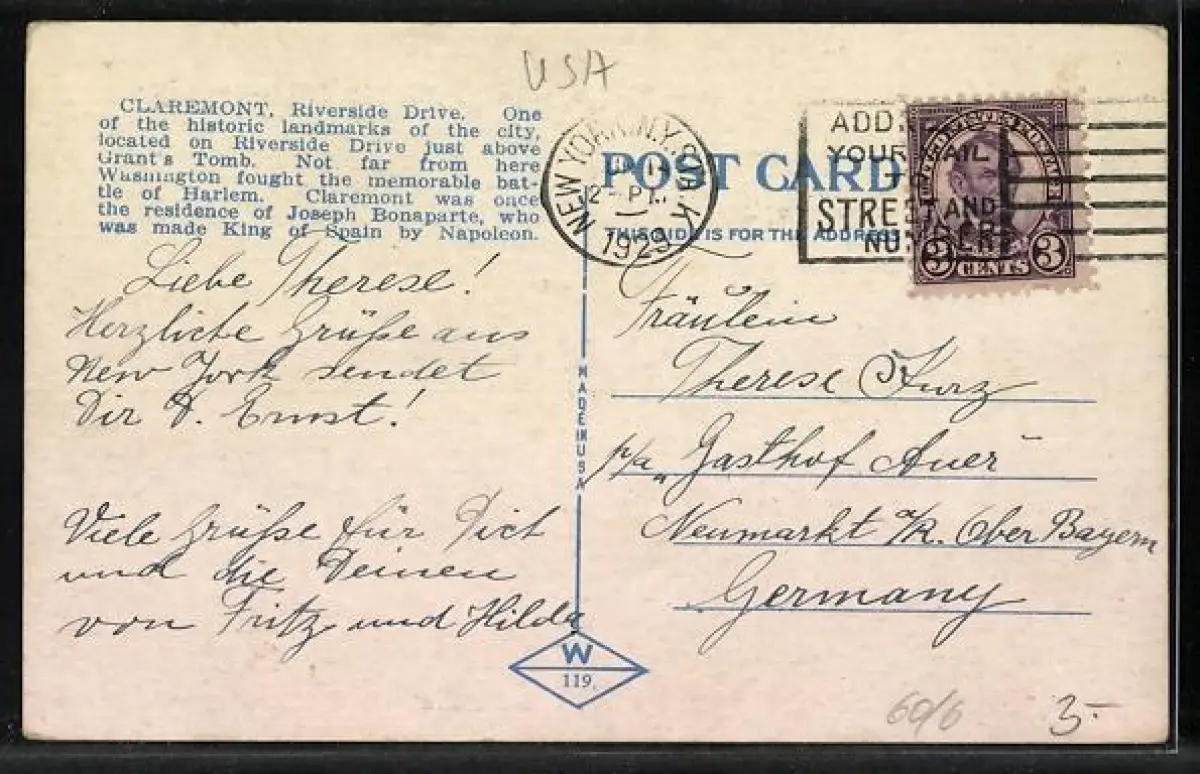 USA
CLAREMONT, Riverside Drive. One
of the historic landmarks of the city,
located on Riverside Drive just above
Grant's Tomb. Not far from here
Washington fought the memorable bat-
tle of Harlem. Claremont was once
the residence of Joseph Bonaparte, who
was made King of Spain by Napoleon.
Liebe Therese!
Herzliche Grüße aus
New York sendet
Dir D. Ernst!
Viele Grüße für Dich
und die Deinen
von Fritz und Hilda
NEW YORK, N.Y.
12 - P
1929
POST CARD
THIS SIDE IS FOR THE ADDRESS
YOUR MAIL
STREET AND
NUMBER
3 CENTS 3
MADE IN USA
Fräulein
Therese Kurz
p/a "Gasthof Auer"
Neumarkt a/R. Ober Bayern
Germany
W
119.
60/6
3.-